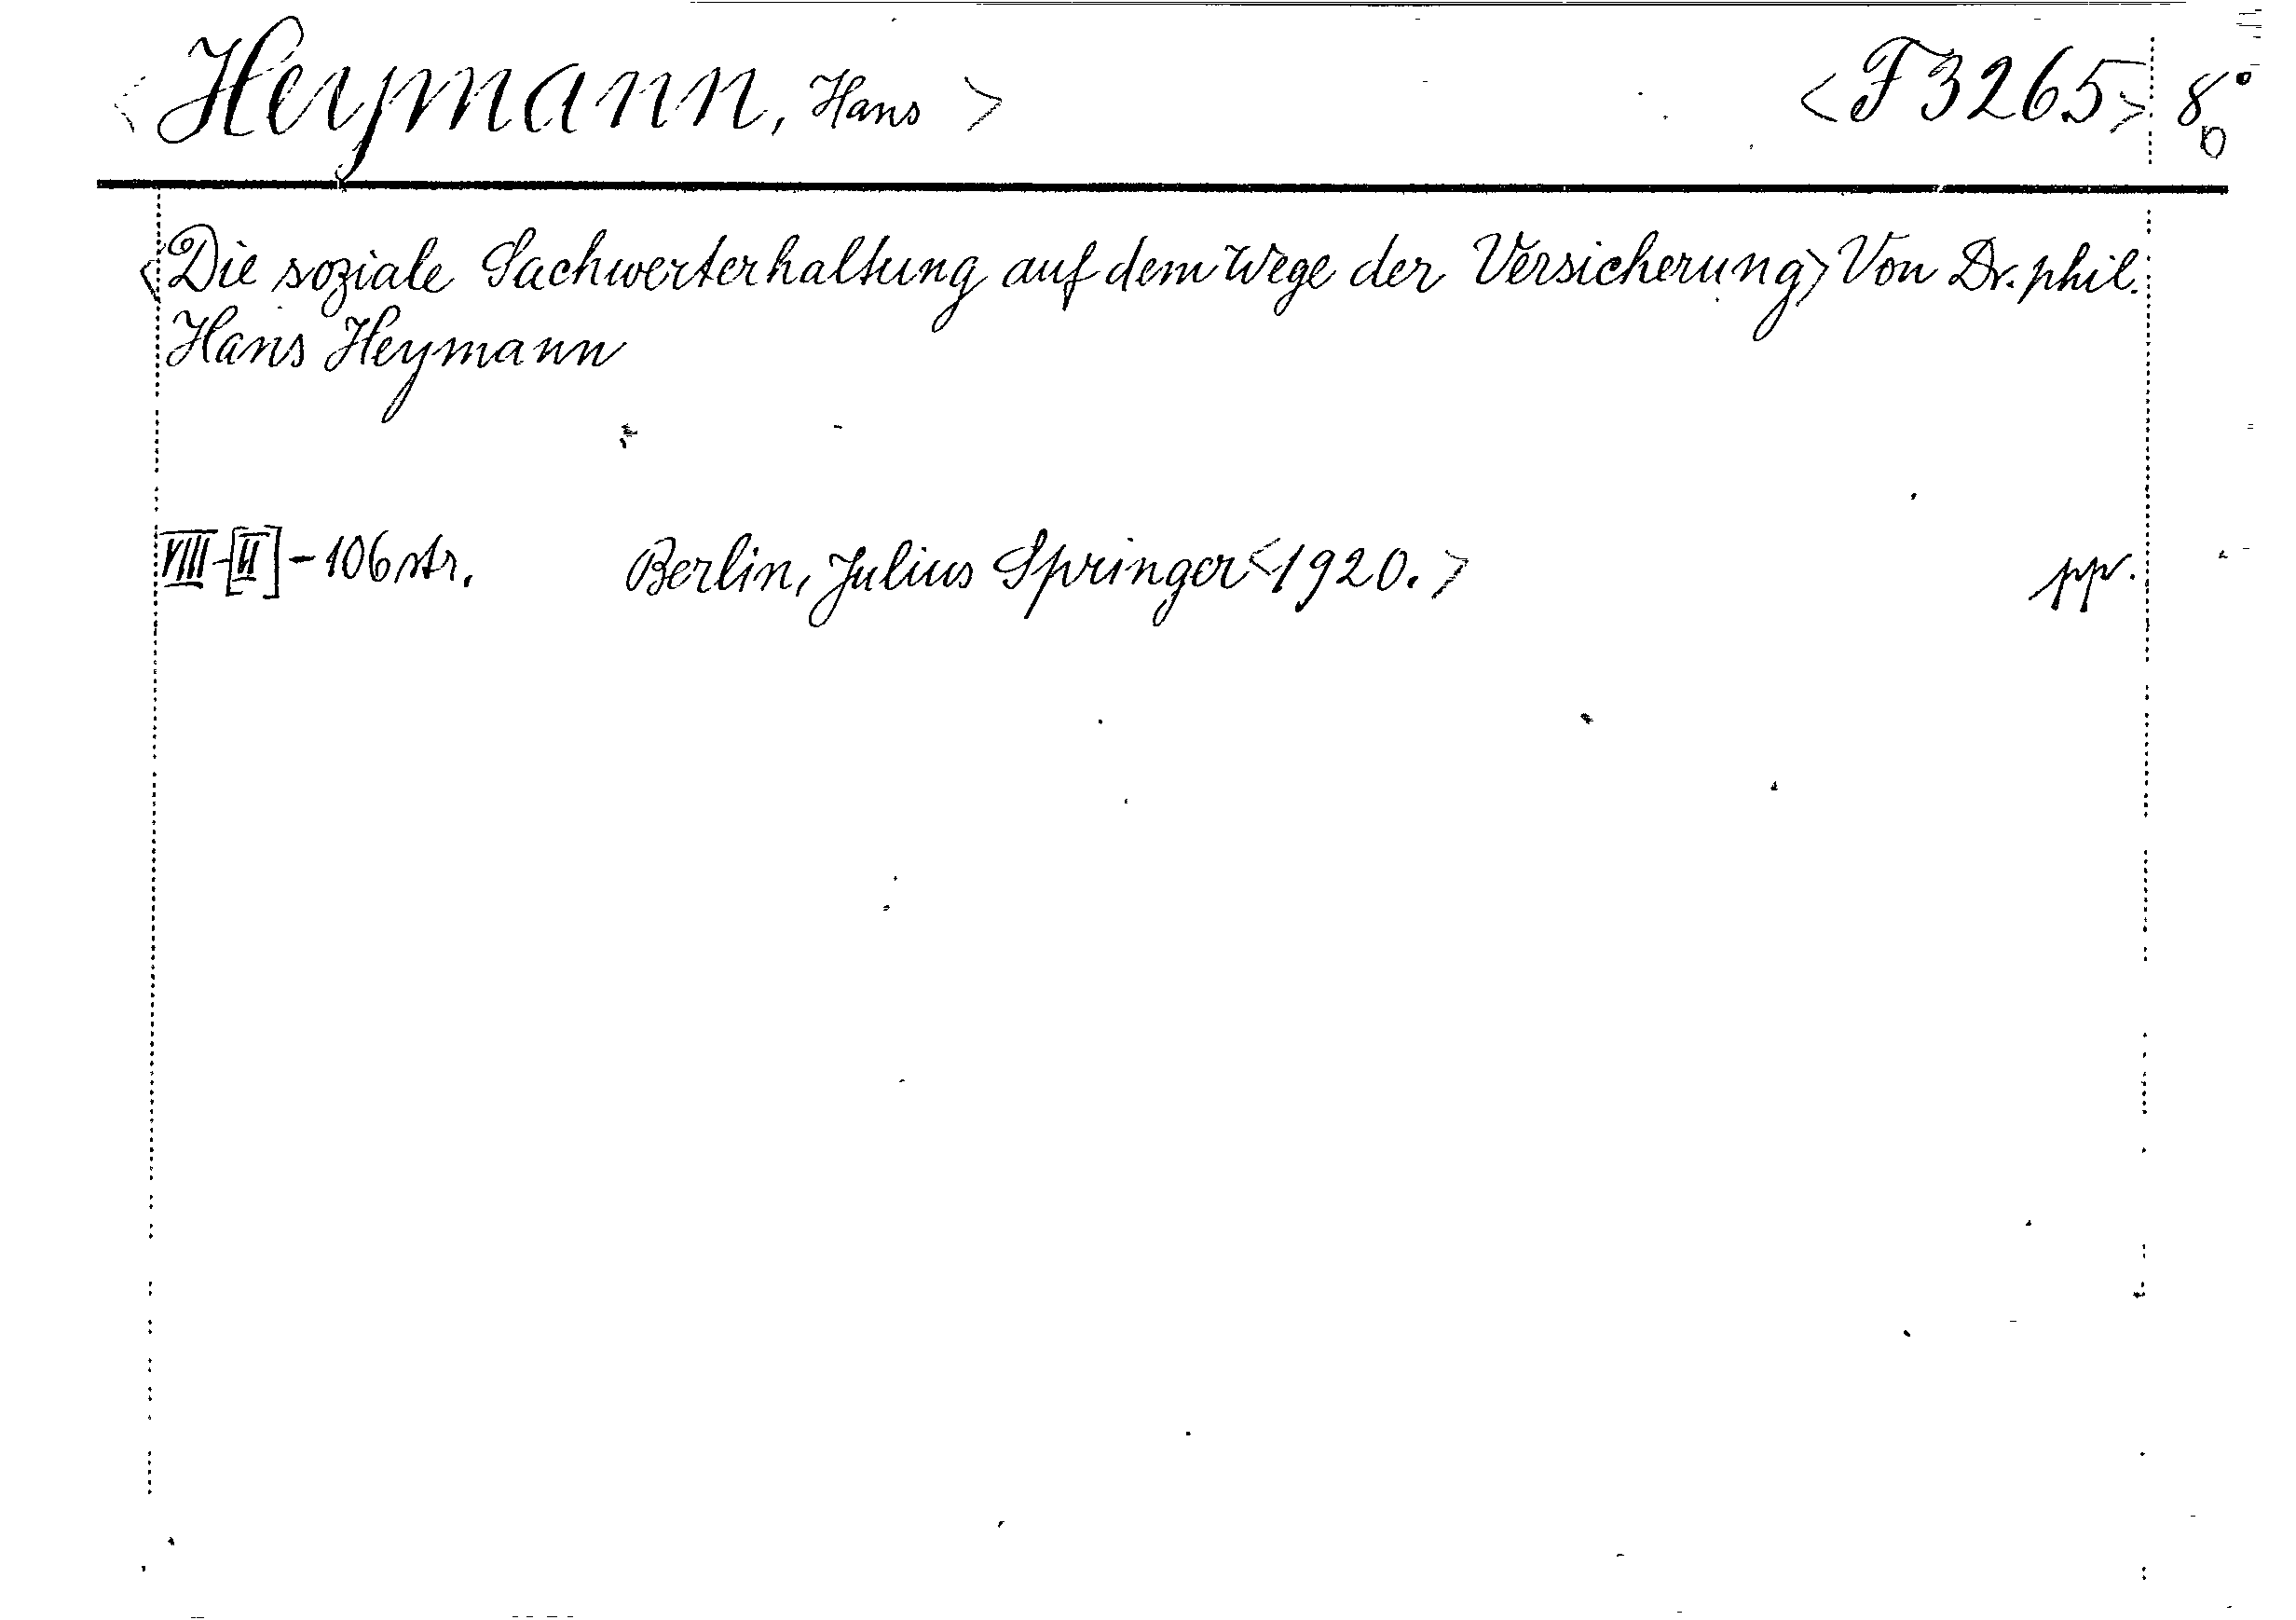 <Heymann, Hans> <F3265> 8°
<Die soziale Sachwerterhaltung auf dem Wege der Versicherung> Von Dr. phil.
Hans Heymann
VIII-[II]-106 str. Berlin, Julius Springer <1920.> pp.